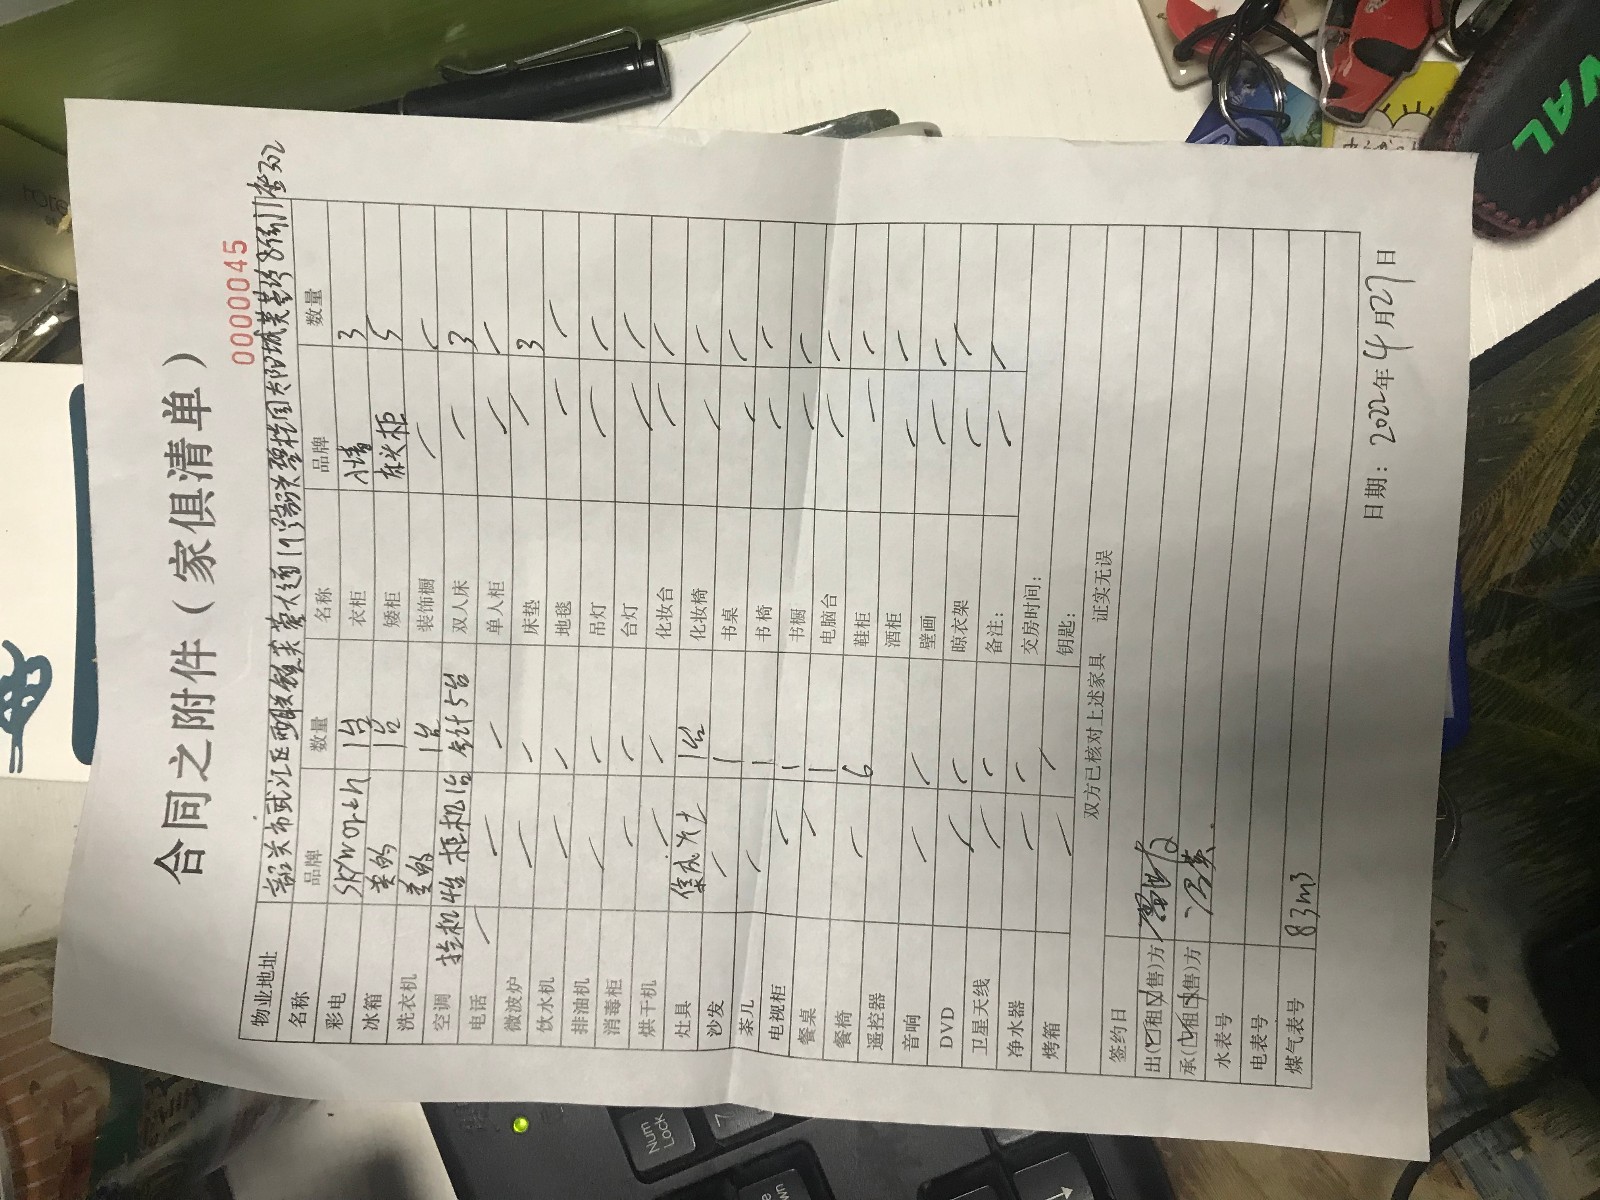 合同之附件（家俱清单）
0000045
物业地址 韶关市武江区西联镇芙蓉大道17号韶关碧桂园太阳城芙蓉 302
名称 品牌 数量 名称 品牌 数量
彩电 Skyworth 1台 衣柜 入墙 3
冰箱 美的 1台 矮柜 床头柜 5
洗衣机 美的 1台 装饰橱 / /
空调 挂机4台 柜机1台 合计5台 双人床 / 3
电话 / / 单人柜 / /
微波炉 / / 床垫 / 3
饮水机 / / 地毯 / /
排油机 / / 吊灯 / /
消毒柜 / / 台灯 / /
烘干机 / / 化妆台 / /
灶具 集成灶 1台 化妆椅 / /
沙发 / 1 书桌 / /
茶几 / 1 书椅 / /
电视柜 / 1 书橱 / /
餐桌 / 1 电脑台 / /
餐椅 / 6 鞋柜 / /
遥控器 酒柜 / /
音响 / / 壁画 / /
DVD / / 晾衣架 / /
卫星天线 / / 备注： / /
净水器 / / 交房时间：
烤箱 / / 钥匙：
双方已核对上述家具 证实无误
签约日
出(☑租☐售)方
承(☑租☐售)方
水表号
电表号
煤气表号 83m3
日期：2022年4月27日
Num
Lock
7
VAL